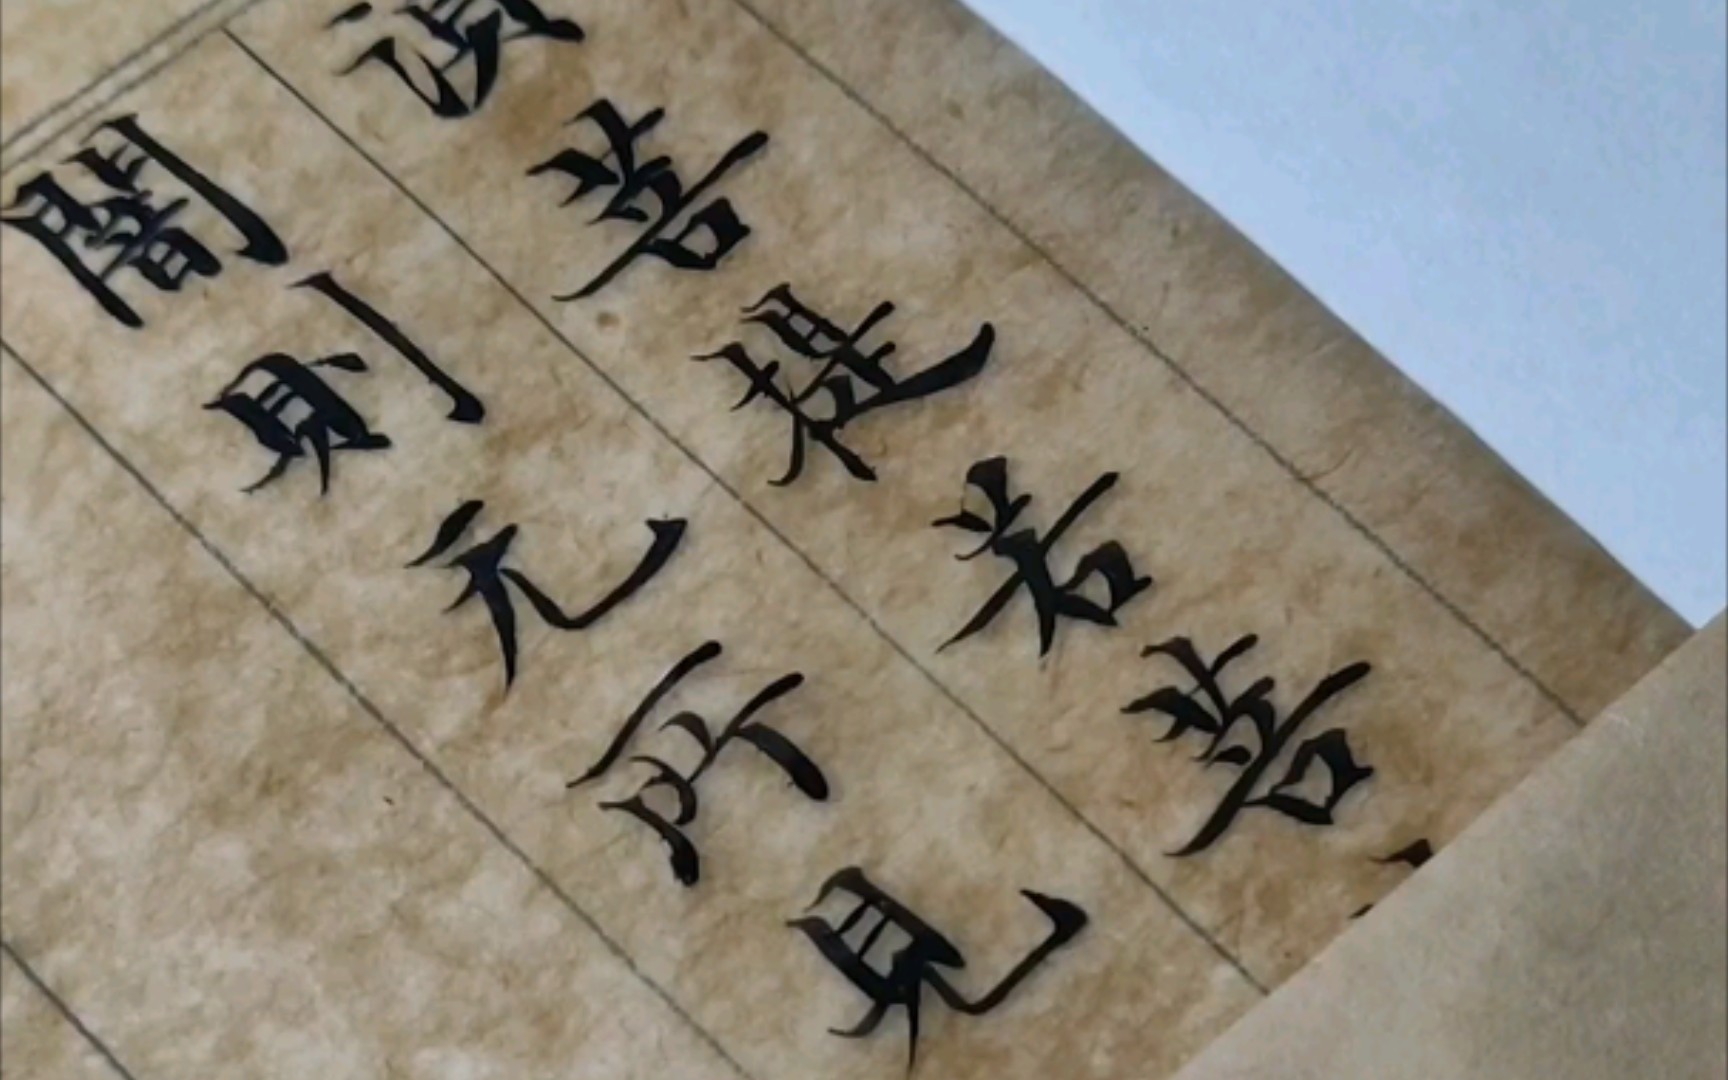 湏菩提若菩
闇則无所見